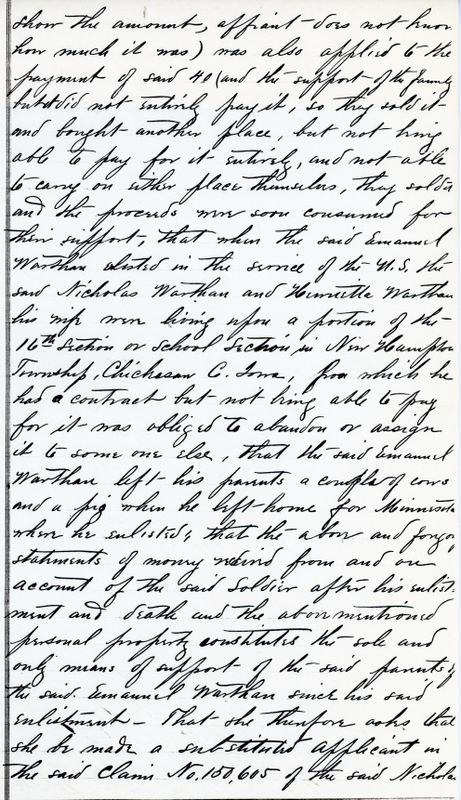 show the amount, affiant does not know
how much it was) was also applied to the
payment of said 40 (and the support of the family
but it did not entirely pay it, so they sold it
and bought another place, but not being
able to pay for it entirely, and not able
to carry on either place themselves, they sold it
and the proceeds were soon consumed for
their support, that when the said Emanuel
Warthan elisted in the service of the U.S. the
said Nicholas Warthan and Henrietta Warthan
his wife were living upon a portion of the
16th Section or School Section in New Hampton
Township, Chickasaw Co. Iowa, for which he
had a contract but not being able to pay
for it was obliged to abandon or assign
it to some one else, that the said Emanuel
Warthan left his parents a couple of cows
and a pig when he left home for Minnesota
where he enlisted; that the above and forgoy
statements of money recived from and on
account of the said Soldier after his enlist-
ment and death and the above mentioned
personal property constitutes the sole and
only means of support of the said parents of
the said Emanuel Warthan since his said
enlistment – That she therefore asks that
she be made a substituted applicant in
the said claim No, 150,605 of the said Nicholas